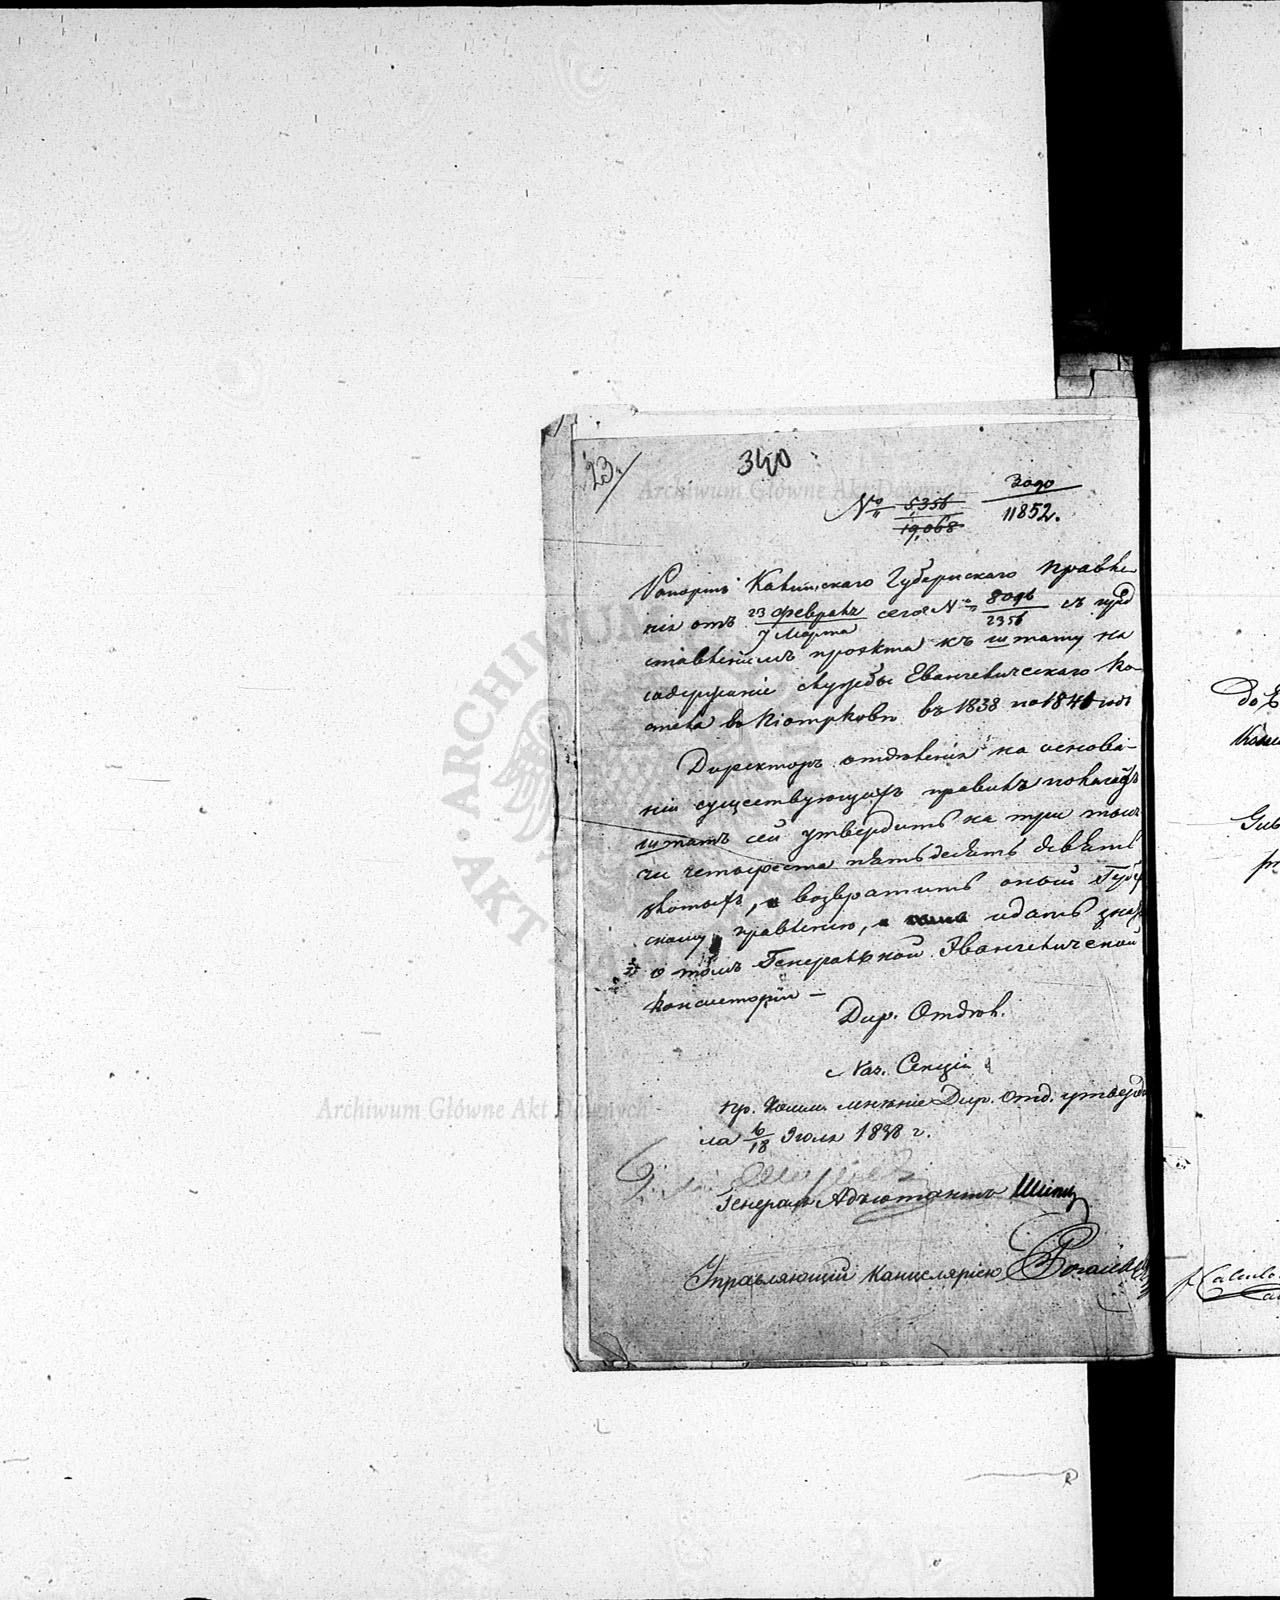 23.
340
№ 5,356 3090
19,068 11852.
Рапортъ Калишскаго Губернскаго Правле
нія отъ 23 Февраля сего № 8096 съ пред
7 Марта 2356
ставленіемъ проэкта къ штату на
содержаніе службы Евангелическаго Ко-
стела въ Піотрковѣ въ 1838 по 1840 годъ
Директоръ отдѣленія на основа-
ніи существующихъ правилъ полагаетъ
штатъ сей утвердить на три тыся
чи четыреста пятьдесятъ девять
злотыхъ, и возвратить оный Губерн
скому правленію, и дать знать
о томъ Генеральной Евангелической
Консисторіи —
Дир. Отдѣл.
Нач. Секціи
пр. Комми. мнѣніе Дир. Отд. утверди
ла 6/18 Іюля 1838 г.
Генералъ Адъютантъ Шипов
Управляющій Канцеляріею
До
f Calculo
Archiwum Główne Akt Dawnych
Archiwum Główne Akt Dawnych
ARCHIWUM
AKT